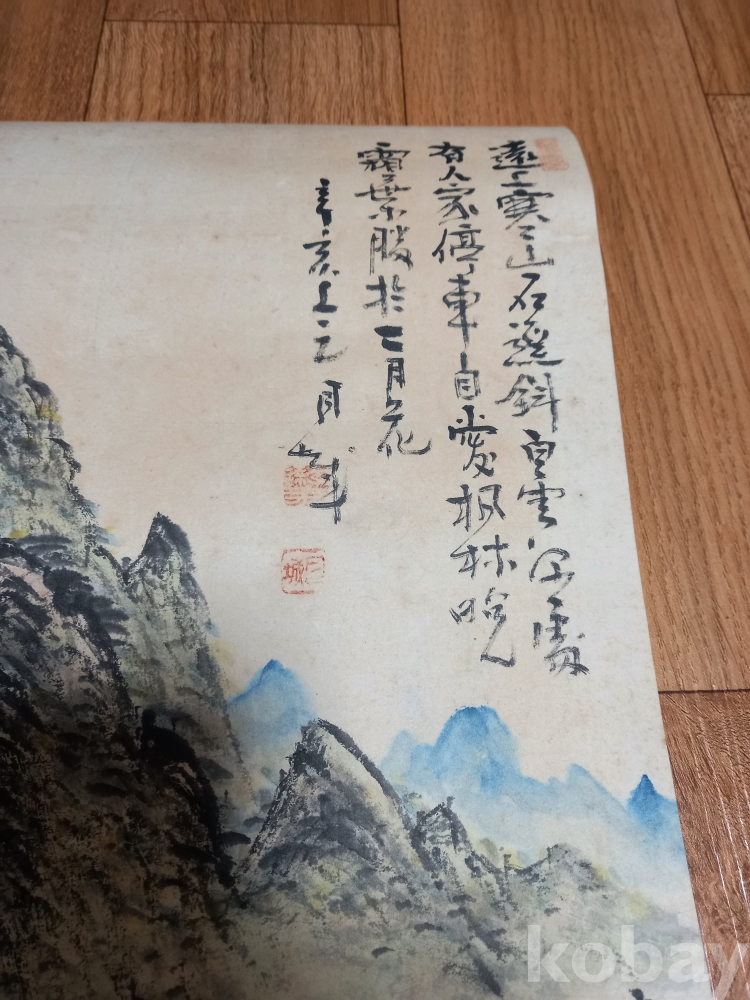 遠上寒山石逕斜白雲深處
有人家停車自愛枫林晚
霜葉勝於二月花
辛亥上元 月城
月城
kobay